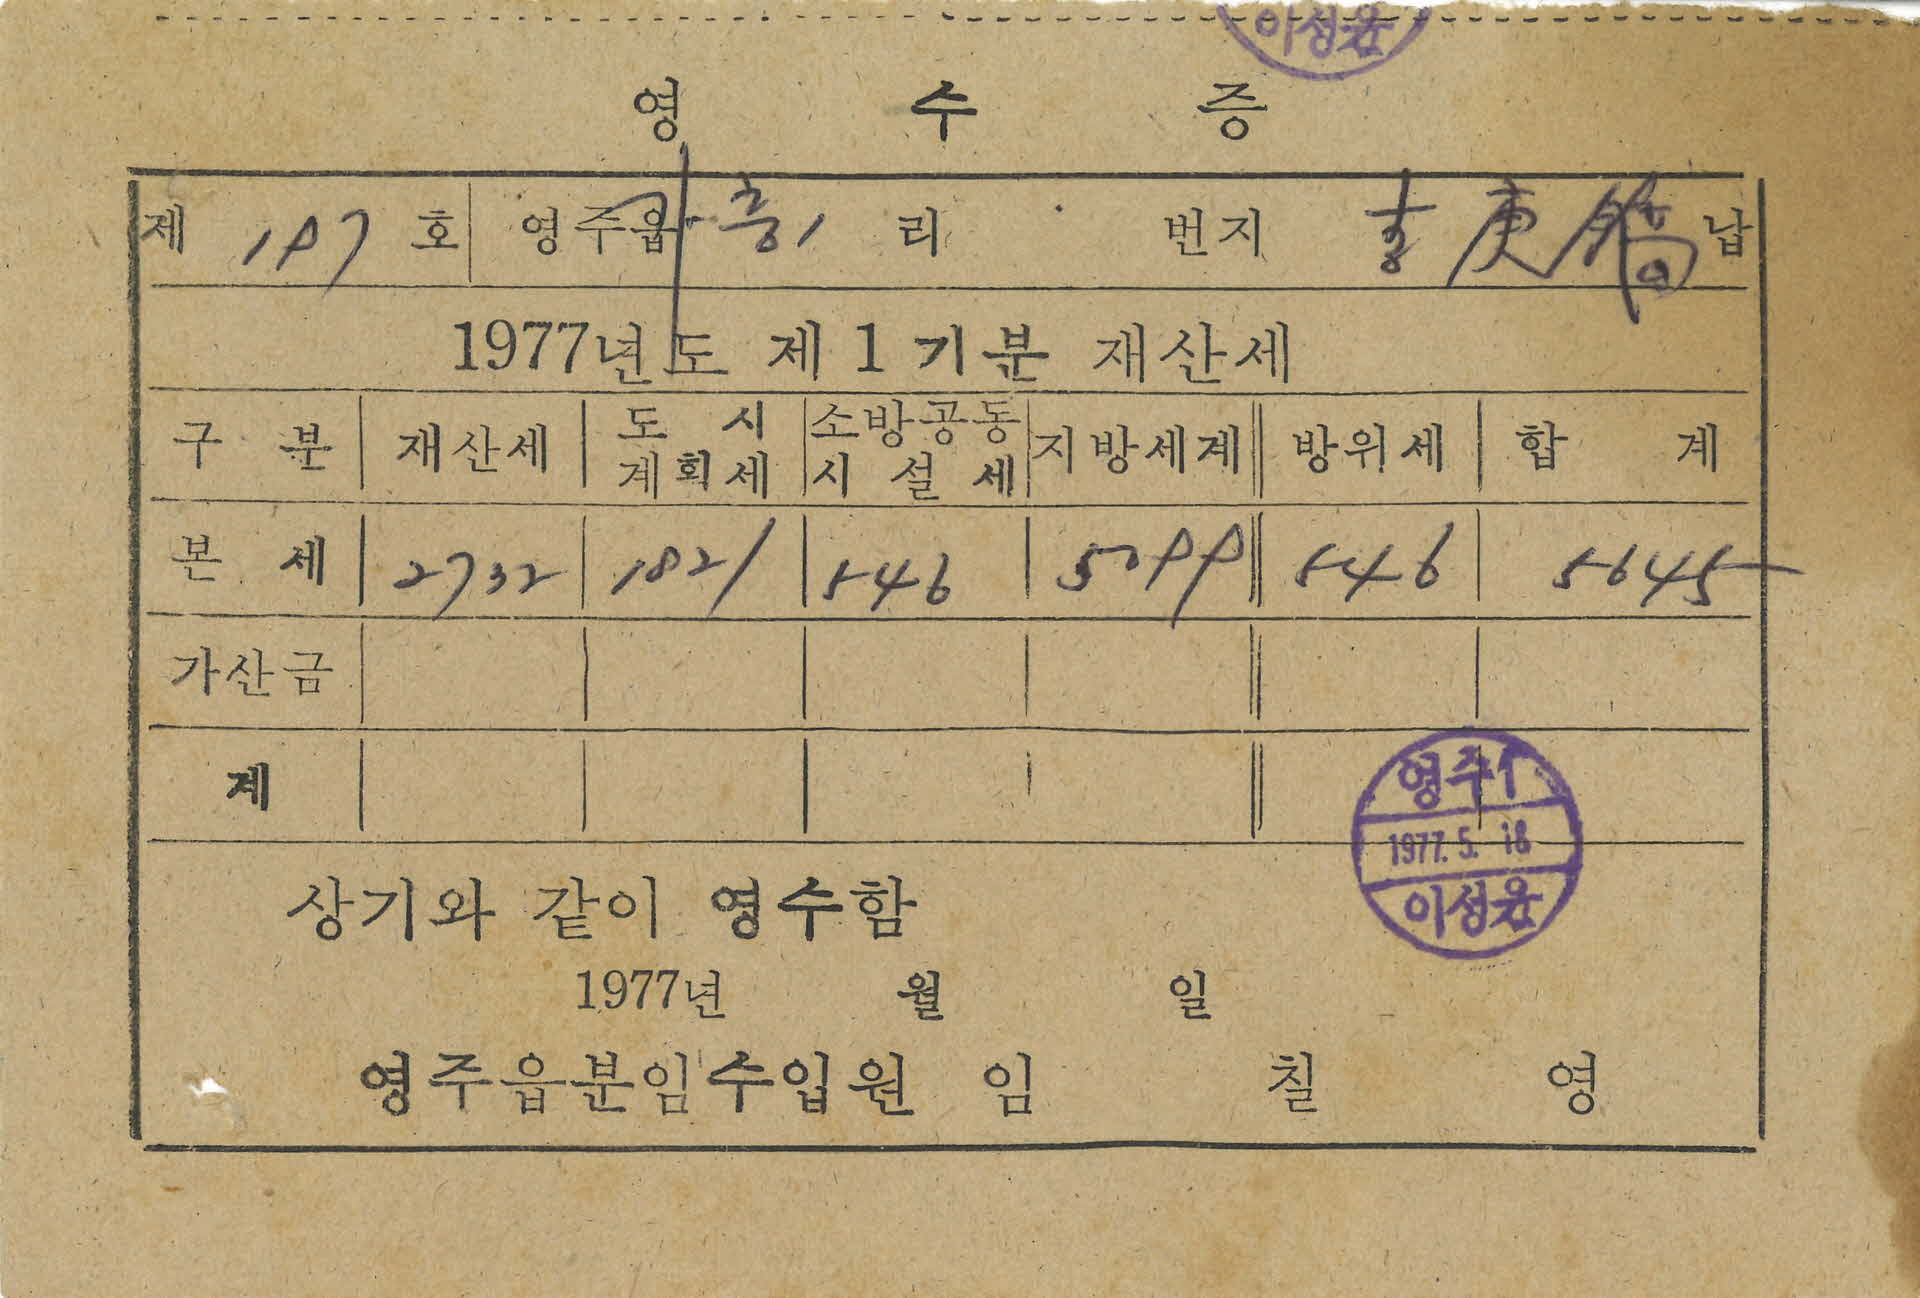 이성윤
영수증
제 197 호 영주읍 가흥1 리 번지 납
1977년도 제1기분 재산세
구분 재산세 도시계획세 소방공동시설세 지방세계 방위세 합계
본세 2732 1821 546 5099 546 5645
가산금
계
영주1
1977. 5. 18
이성윤
상기와 같이 영수함
1977년 월 일
영주읍분임수입원 임칠영